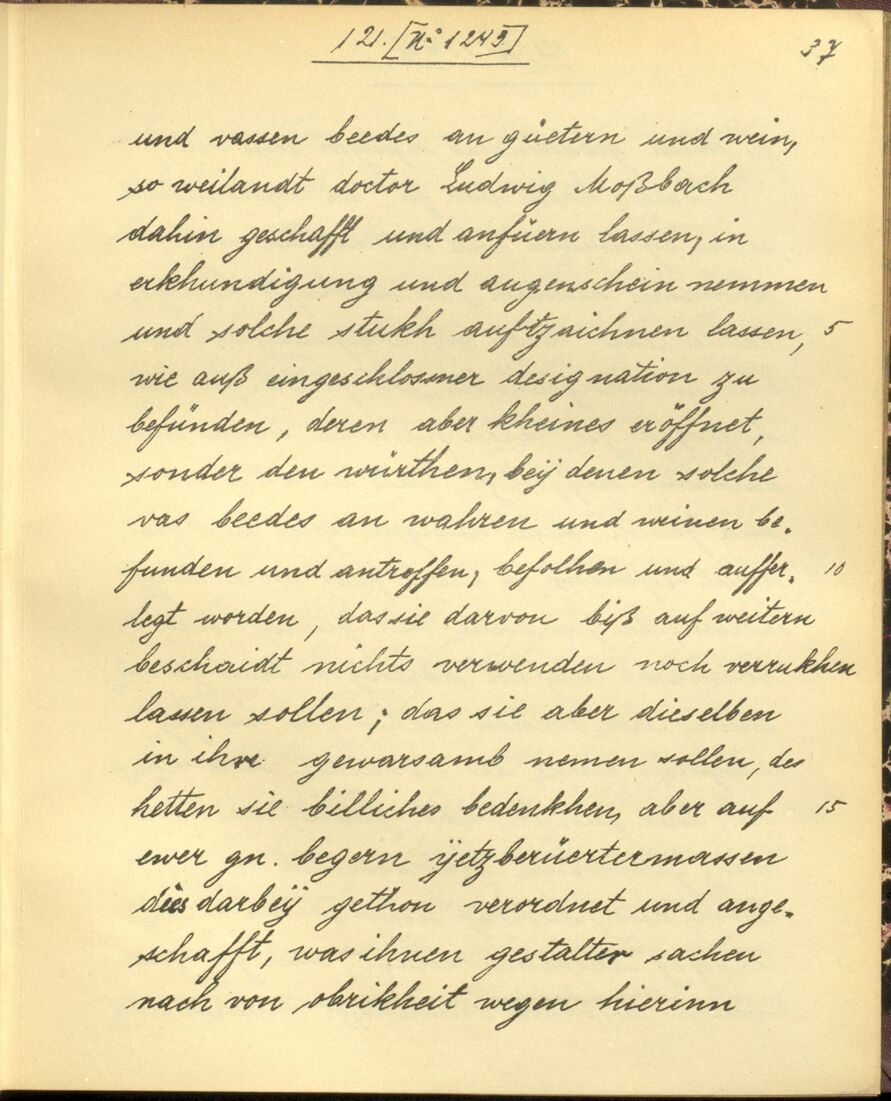 121. [N: 1249]
37
und vassen beedes an güetern und wein,
so weilandt doctor Ludwig Moßbach
dahin geschafft und anfüern lassen, in
erkhundigung und augenschein nemmen
und solche stukh auftzaichnen lassen, 5
wie auß eingeschlossner designation zu
befünden, deren aber kheines eröffnet,
sonder den würthen, beÿ denen solche
vas beedes an wahren und weinen be-
funden und antroffen, befolhen und auffer- 10
legt worden, das sie darvon biß auf weitern
beschaidt nichts verwenden noch verrukhen
lassen sollen; das sie aber dieselben
in ihre gewarsamb nemen sollen, des
hetten sie billiches bedenkhen, aber auf 15
ewer gn. begern ÿetzberüertermassen
dies darbeÿ gethon verordnet und ange-
schafft, was ihnen gestalter sachen
nach von obrikheit wegen hierinn